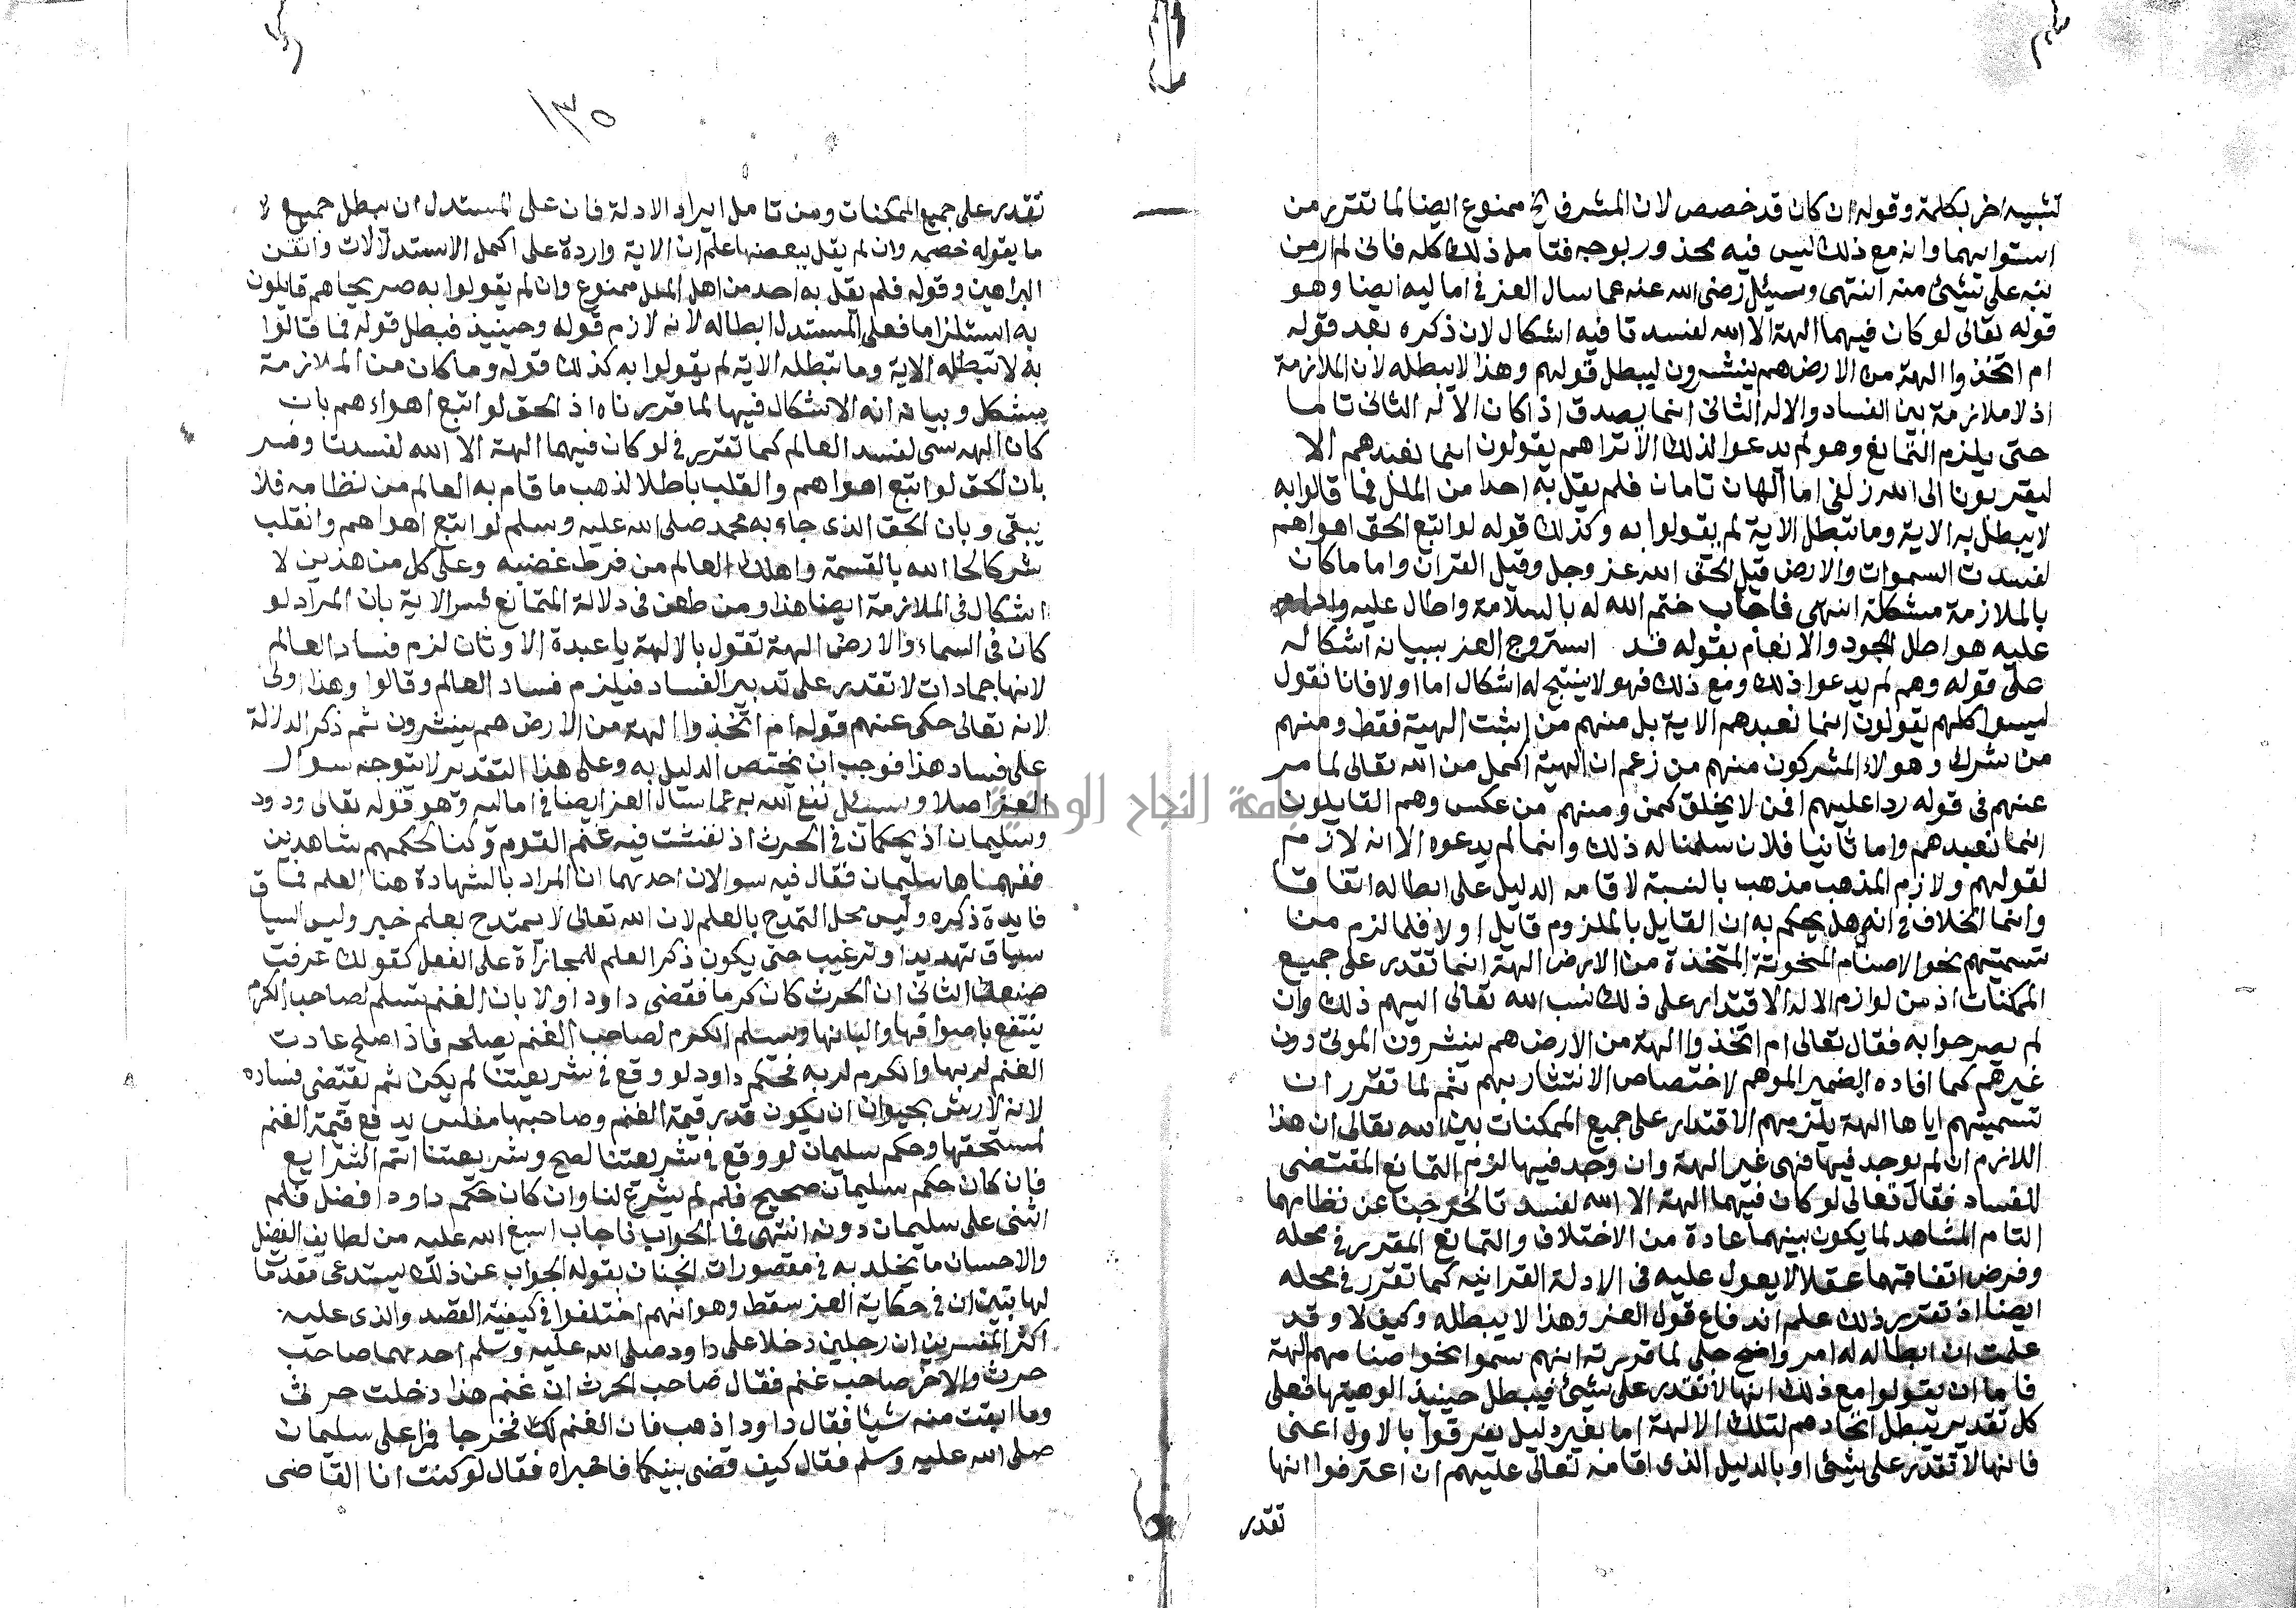 تشبيه اخر بكلمة وقوله ان كان قد خصص لان المشرف الخ ممنوع ايضا لما تقرر من
استوائهما وانه مع ذلك ليس فيه محذور بوجه فتامل ذلك كله فاني لم ار من
نبه على شيئ منه انتهى وسيئل رضى الله عنه عما سال العز في اماليه ايضا وهو
قوله تعالى لو كان فيهما الهة الا الله لفسدتا فيه اشكال لان ذكره بعد قوله
ام اتخذوا الهة من الارض هم ينشرون ليبطل قولهم وهذا لا يبطله لان الملازمة
اذ لا ملازمة بين الفساد والاله الثانى انما يصدق اذا كان الاله الثانى تاما
حتى يلزم التمانع وهو لم يدعوا لذلك الا تراهم يقولون انما نعبدهم الا
ليقربونا الى الله زلفى اما الهان تامان فلم يقل به احد من الملل فما قالوا به
لا يبطل به الاية وما تبطل الاية لم يقولوا به وكذلك قوله لو اتبع الحق اهواهم
لفسدت السموات والارض قيل الحق الله عز وجل وقيل القران واما ما كان
بالملازمة مشكلة انتهى فاجاب ختم الله له بالسلامة واطال عليه
عليه هواطل الجود والانعام بقوله قد استروح العز ببيانه اشكاله
على قوله وهم لم يدعوا ذلك ومع ذلك فهو لا ينتج له اشكال اما اولا فانا نقول
ليسوا كلهم يقولون انما نعبدهم الاية بل منهم من اثبت الهية فقط ومنهم
من شرك وهولاء المشركون منهم من زعم ان الهته اكمل من الله تعالى لما مر
عنهم فى قوله ردا عليهم افمن لا يخلق كمن ومنهم من عكس وهم القايلون
انما نعبدهم واما ثانيا فلان سلمنا له ذلك وانما لم يدعوه الا انه لازم
لقولهم ولازم المذهب مذهب بالنسبة لاقامه الدليل على ابطاله اتفاقا
وانما الخلاف في انه هل يحكم به ان القايل بالملزوم قايل اولا فلما لزم من
تسميتهم نحو الاصنام المنحوتة المتخذة من الارض الهة انما تقدر على جميع
الممكنات اذ من لوازم الاله الاقتدار على ذلك نسب الله تعالى اليهم ذلك وان
لم يصرحوا به فقال تعالى ام اتخذوا الهة من الارض هم ينشرون الموتى دون
غيرهم كما افاده الضمير الموهم لاختصاص الانتشار بهم ثم لما تقرر ان
تسميتهم اياها الهة يلزمهم الاقتدار على جميع الممكنات بين الله تعالى ان هذا
اللازم ان لم يوجد فيها فهى غير الهة وان وجد فيها لزم التمانع المقتضى
للفساد فقال تعالى لو كان فيهما الهة الا الله لفسدتا لخرجنا عن نظامهما
التام المشاهد لما يكون بينهما عادة من الاختلاف والتمانع المقرر في محله
وفرض اتفاقهما عقلا لا يعول عليه فى الادلة القرانيه كما تقرر في محله
ايضا اذ تقرر ذلك علم اندفاع قول العز وهذا لا يبطله وكيف لا وقد
علمت ان ابطاله له امر واضح جلى لما قررته انهم سموا نحو اصنامهم الهة
فاما ان يقولوا مع ذلك انها لا تقدر على شيئ فيبطل حينيذ الوهيتها فعلى
كل تقدير يبطل اتخاذهم لتلك الالهة اما بغير دليل يعرفوا بالاول اعنى
فانها لا تقدر على شيئ او بالدليل الذى اقامه تعالى عليهم ان اعترفوا انها
تقدر
١٣٥
تقدر على جميع الممكنات ومن تامل ايراد الادلة فان على المستدل ان يبطل جميع لا
ما يقوله خصمه وان لم يقل ببعضها علم ان الاية واردة على اكمل الاستدلالات واتقن
البراهين وقوله فلم يقل به احد من اهل الملل ممنوع وان لم يقولوا به صريحا هم قايلون
به استلزاما فعلى المستدل ابطاله لانه لازم قوله وحينيذ فبطل قوله فما قالوا
به لا تبطله الاية وما تبطله الاية لم يقولوا به كذلك قوله وما كان من الملازمة
مشكل وبيانه انه الاشكال فيها لما قررناه اذ الحق لو اتبع اهواءهم بان
كان الهه شى لفسد العالم كما تقرر في لو كان فيهما الهة الا الله لفسدتا وفسر
بان الحق لو اتبع اهواهم والقلب باطلا لذهب ما قام به العالم من نظامه فلا
يبقى وبان الحق الذى جاء به محمد صلى الله عليه وسلم لو اتبع اهواهم وانقلب
شركا لجا الله بالقسمة واهلك العالم من فرط غضبه وعلى كل من هذين لا
اشكال فى الملازمة ايضا هذا ومن طعن فى دلالة التمانع فسر الاية بان المراد لو
كان فى السماء والارض الهة تقول بالالهة يا عبدة الاوثان لزم فساد العالم
لانها جمادات لا تقدر على تدبير الفساد فيلزم فساد العالم وقالوا وهذا اولى
لانه تعالى حكى عنهم قوله ام اتخذوا الهة من الارض هم ينشرون ثم ذكر الدلالة
على فساد هذا فوجب ان يختص الدليل به وعلى هذا التقدير لا يتوجه سوال
العز اصلا وسيئل نفع الله به عما سئال العز ايضا في اماليه وهو قوله تعالى ودود
وسليمان اذ يحكمان فى الحرث اذ نفشت فيه غنم القوم وكنا لحكمهم شاهدين
ففهمناها سليمان فقال فيه سوالان احدهما ان المراد بالشهادة هنا العلم فما ق
فايدة ذكره وليس محل التمدح بالعلم لان الله تعالى لا يمتدح بعلم خير وليس السيا
سياق تهديدا وترغيب حتى يكون ذكر العلم للمجازاة على الفعل كقولك عرفت
صنعك الثانى ان الحرث كان كرما فقضى داود اولا بان الغنم تسلم لصاحب الكرم
ينتفع باصوافها والبانها ويسلم الكرم لصاحب الغنم يصلحه فاذا صلح عادت
الغنم لربها والكرم لربه فحكم داود لو وقع فى شريعتنا لم يكن ثم يقتضى فساده
لانه لا ارش بحيوان ان يكون قدر قيمة الغنم وصاحبها مفلس يدفع قيمة الغنم
لمستحقها وحكم سليمان لو وقع فى شريعتنا لصح وشريعتنا اتم الشرايع
فان كان حكم سليمان صحيح فلم لم يشرع لنا وان كان حكم داود افضل فلم
اثنى على سليمان دونه انتهى فما الجواب فاجاب اسبغ الله عليه من لطايف الفضل
والاحسان ما يخلد به فى مقصورات الجنان بقوله الجواب عن ذلك يستدعى مقدمة
لها تبين ان فى حكاية العز سقط وهو انهم اختلفوا فى كيفية القصد والذى عليه
اكثر المفسرين ان رجلين دخلا على داود صلى الله عليه وسلم احدهما صاحب
حرث والاخر صاحب غنم فقال صاحب الحرث ان غنم هذا دخلت حرثى
وما ابقت منه شيئا فقال داود اذهب فان الغنم لك فخرجا فمرا على سليمان
صلى الله عليه وسلم فقال كيف قضى بينكما فاخبراه فقال لو كنت انا القاضى
جامعة النجاح الوطنية